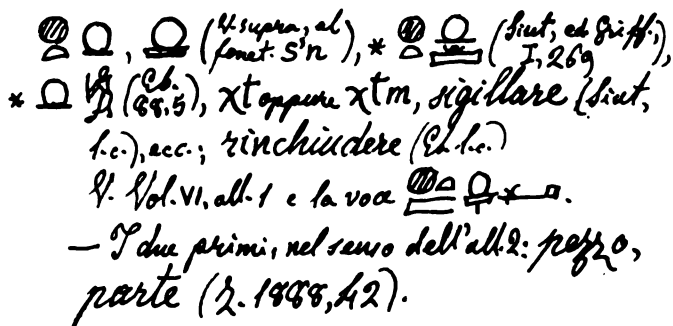 , (V. supra, al
fonet. S'n), * (Siut, ed Griff.,
I, 269),
* (Eb.
88,5), χt oppure χtm, sigillare (Siut,
l.c.), ecc.; rinchiudere (Eb. l.c.)
V. Vol. VI, all. 1 e la voce .
— I due primi, nel senso dell'all. 2: pezzo,
parte (Z. 1888, 42).